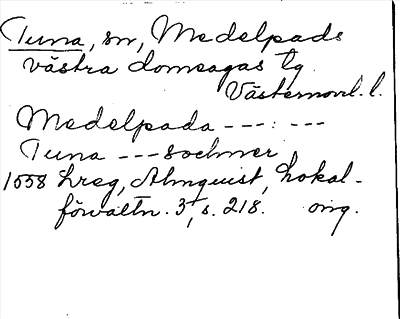 Tuna, sn, Medelpads
västra domsagas tg
Västernorrl. l.
Medelpada ---:---
Tuna --- sochner
1558 Lreg, Almquist, Lokal-
förvaltn. 3, s. 218. orig.